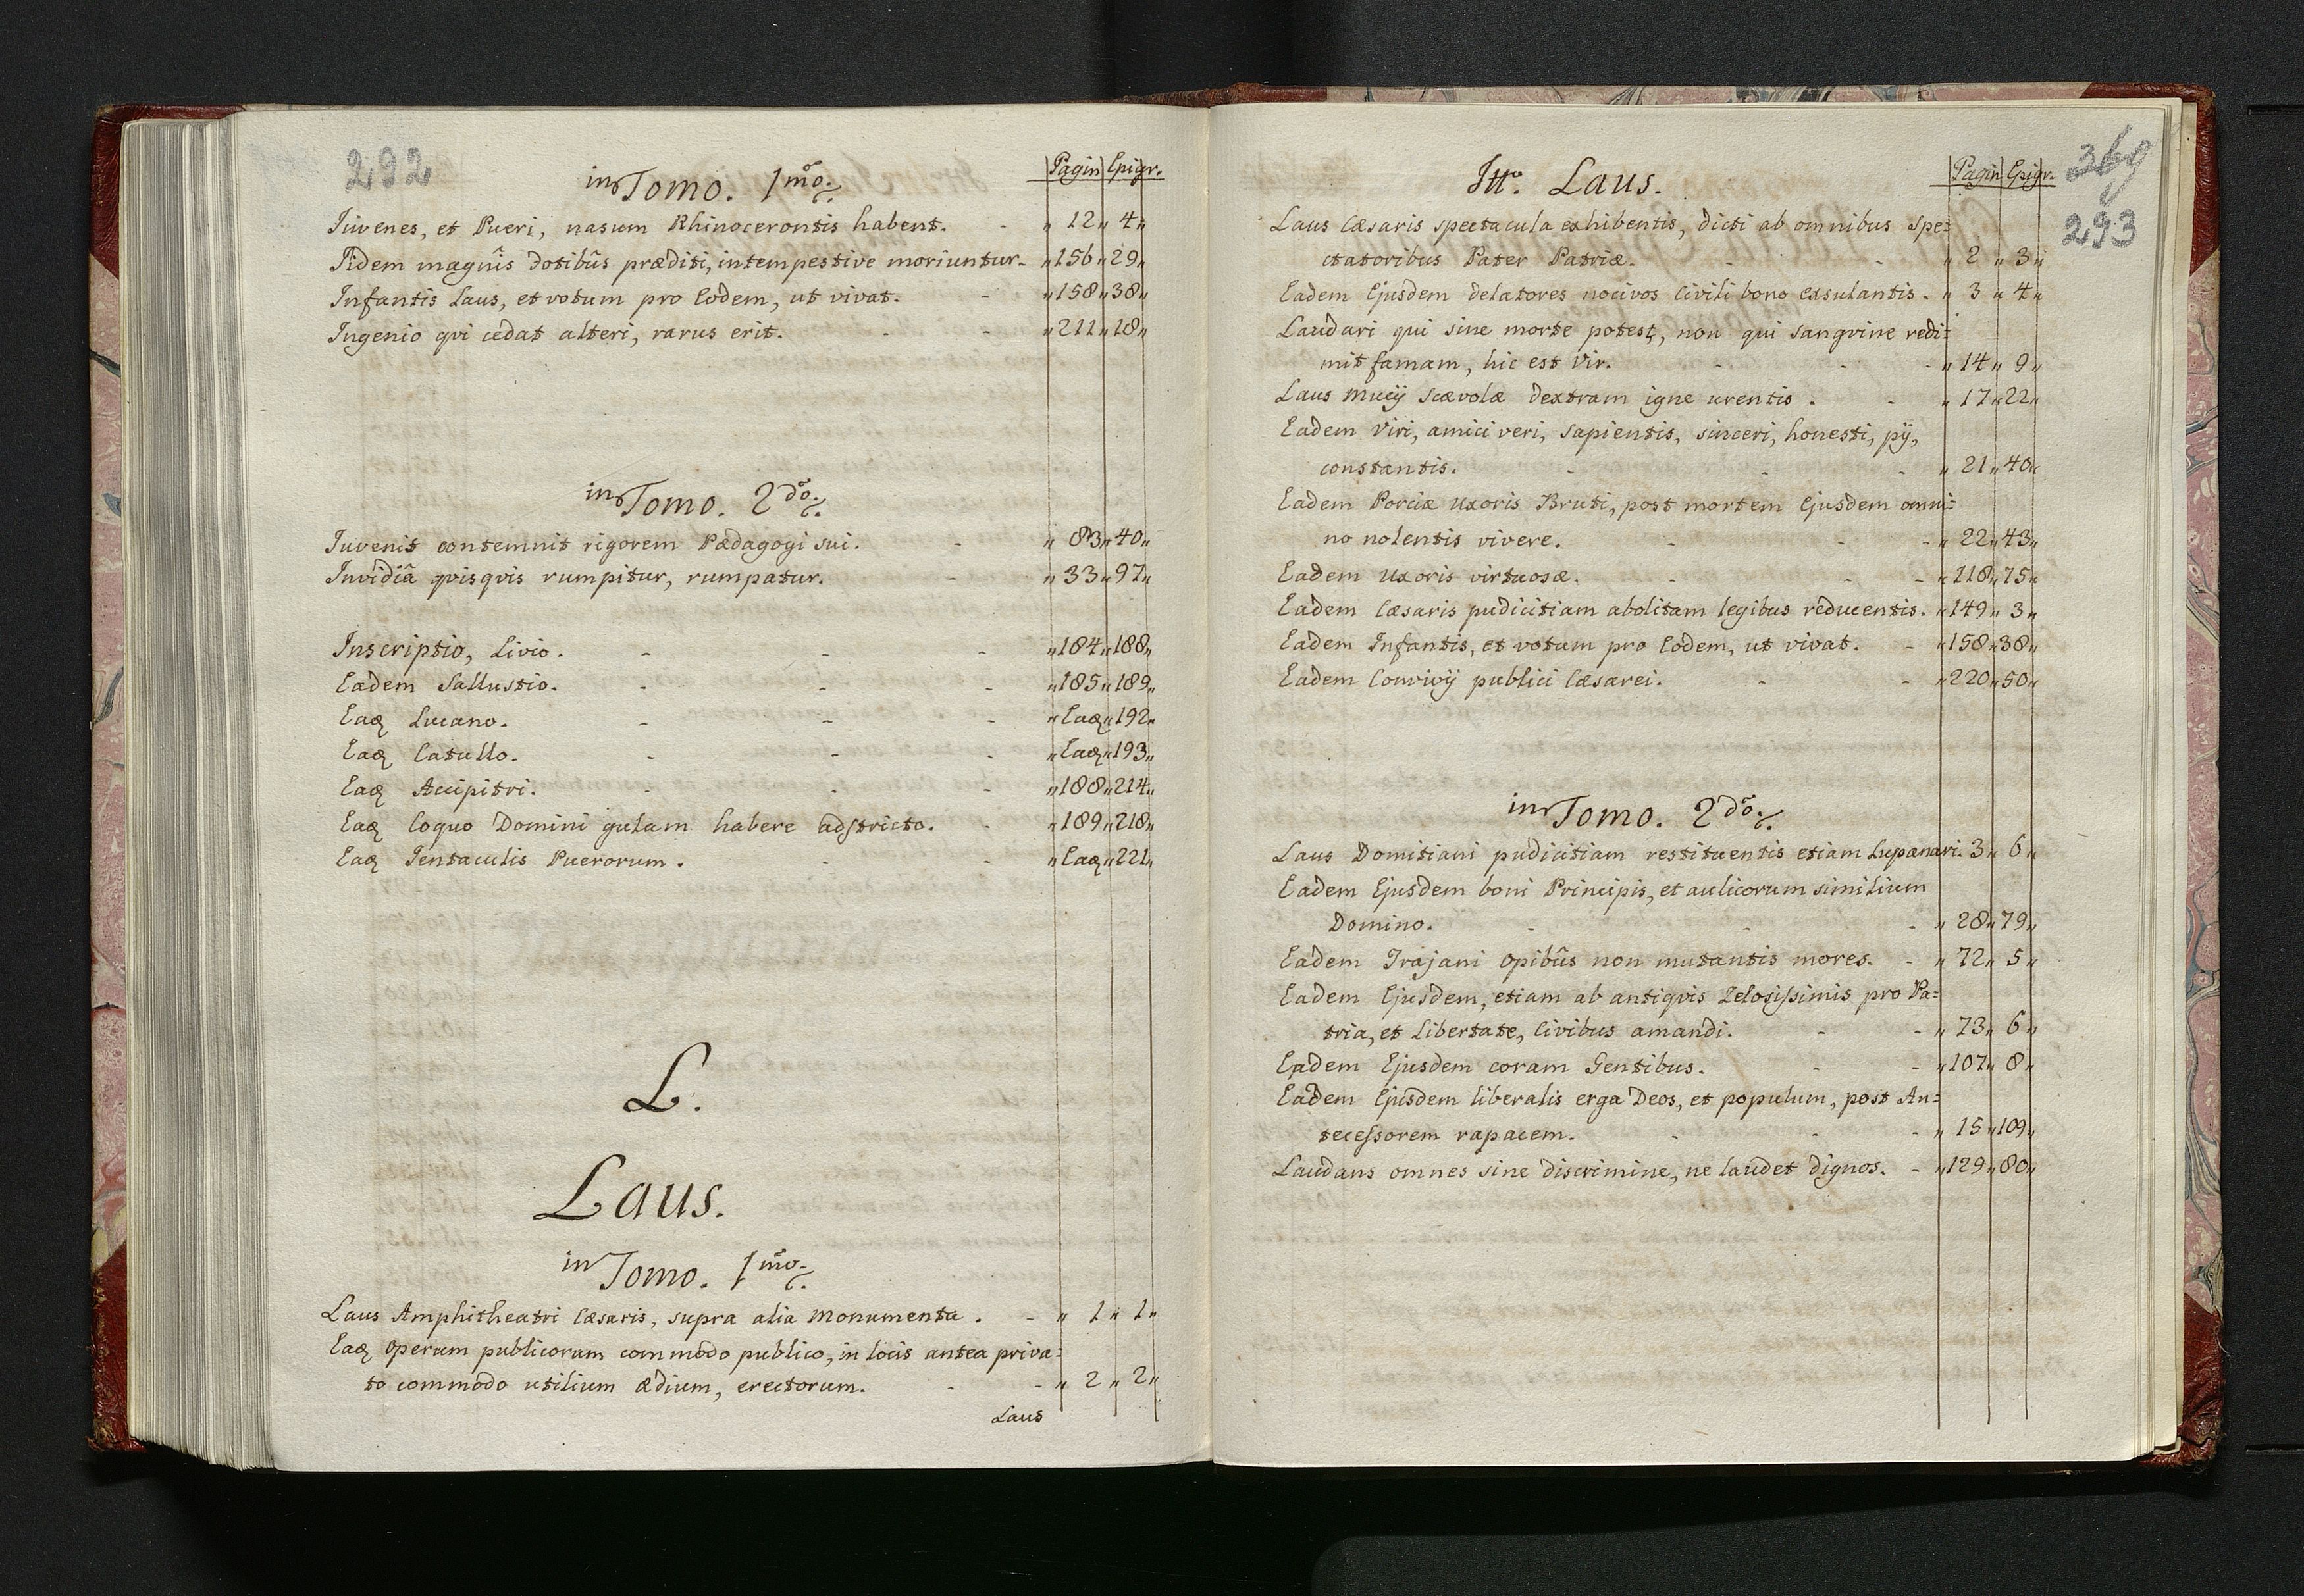 292
in Tomo. 1mo.
Pagin Epigr.
Iuvenes, et Pueri, nasum Rhinocerontis habent. - „ 12 „ 4 „
Iidem magnîs dotibûs præditi, intempestive moriuntur. „ 156 „ 29 „
Infantis Laus, et votum pro Eodem, ut vivat. - „ 158 „ 38 „
Ingenio qvi cedat alteri, rarus erit. - - „ 211 „ 18 „
in Tomo. 2do.
Iuvenis contemnit rigorem Pædagogi sui. - „ 83 „ 40 „
Invidiâ qvisqvis rumpitur, rumpatur. - „ 33 „ 97 „
Inscriptio, Livio. - - - „ 184 „ 188 „
Eadem Sallustio. - - - „ 185 „ 189 „
Eaq Lucano. - - - „ Eaq „ 192 „
Eaq Catullo. - - - „ Eaq „ 193 „
Eaq Accipitri. - - - „ 188 „ 214 „
Eaq Coquo Domini gulam habere adstricto. - „ 189 „ 218 „
Eaq Jentaculis Puerorum. - - „ Eaq „ 221 „
L.
Laus.
in Tomo. 1mo.
Laus Amphitheatri Cæsaris, supra alia Monumenta. - „ 1 „ 1 „
Eaq operum publicorum commodo publico, in locis antea priva=
to commodo utilium ædium, erectorum. - - „ 2 „ 2 „
Laus
369
293
Itto. Laus.
Pagin Epigr.
Laus Cæsaris spectacula exhibentis, dicti ab omnibus spe=
ctatoribus Pater Patriæ. - - „ 2 „ 3 „
Eadem Ejusdem delatores nocivos Civili bono exsulantis. „ 3 „ 4 „
Laudari qui sine morte potest, non qui sangvine redi=
mit famam, hic est Vir. - - - „ 14 „ 9 „
Laus Mucÿ Scævolæ dextram igne urentis. - „ 17 „ 22 „
Eadem Viri, amici veri, sapientis, sinceri, honesti, pÿ,
constantis. - - - „ 21 „ 40 „
Eadem Porciæ Uxoris Bruti, post mortem Ejusdem omni=
no nolentis vivere. - - - „ 22 „ 43 „
Eadem Uxoris virtuosæ. - - - „ 118 „ 75 „
Eadem Cæsaris pudicitiam abolitam legibus reducentis. „ 149 „ 3 „
Eadem Infantis, et votum pro Eodem, ut vivat. - „ 158 „ 38 „
Eadem Convivÿ publici Cæsarei. - - „ 220 „ 50 „
in Tomo. 2do.
Laus Domitiani pudicitiam restituentis etiam Lupanari. 3 „ 6 „
Eadem Ejusdem boni Principis, et aulicorum similium
Domino. - - - „ 28 „ 79 „
Eadem Trajani opibûs non mutantis mores. - „ 72 „ 5 „
Eadem Ejusdem, etiam ab antiqvis Zelosissimis pro Pa=
tria, et Libertate, Civibus amandi. - - „ 73 „ 6 „
Eadem Ejusdem coram Gentibus. - - „ 107 „ 8 „
Eadem Ejusdem liberalis erga Deos, et populum, post An=
tecessorem rapacem. - - - „ 15 „ 109 „
Laudans omnes sine discrimine, ne laudet dignos. - „ 129 „ 80 „